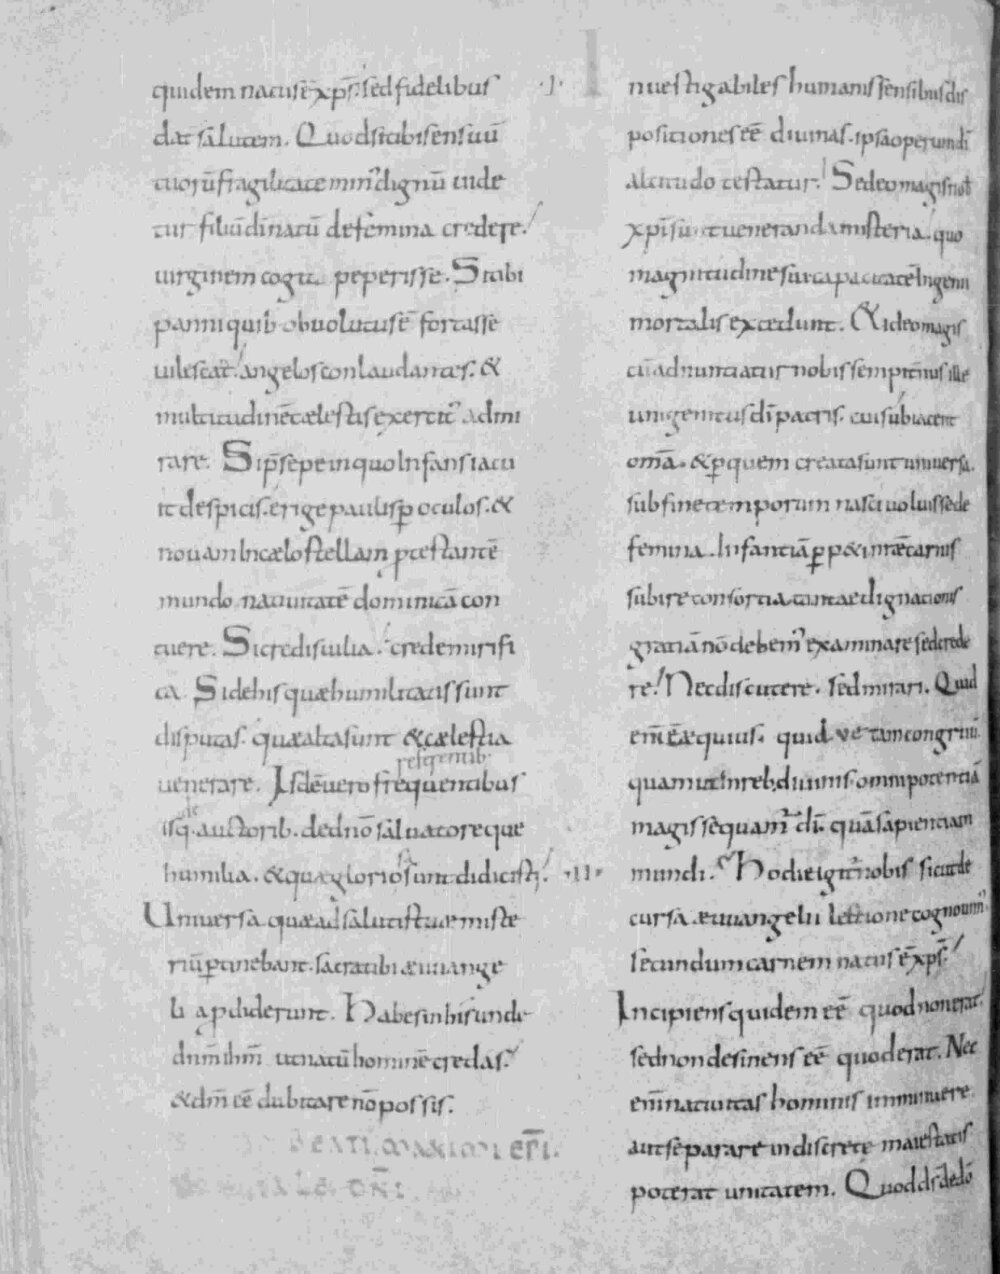 quidem natus ē xp̄s̄. sed fidelibus
dat salutem. Quod si tibi sensuū
tuorū fragilitate minꝰ dignū uide
tur filiū dī natū de femina credere.
uirginem cogita peperisse. Si tibi
panni quib obuolutus ē fortasse
uilescat. angelos conlaudantes. &
multitudinē cælestis exercitꝰ admi
rare. Si p̄sepe in quo Infans iacu
it despicis. erige paulisꝑ oculos. &
nouam In cælo stellam ꝓtestantē
mundo natiuitatē dominicā con
tuere. Si credis uilia. crede mirifi
ca. Si de his quæ humilitatis sunt
disputas. quæ alta sunt & cælestia
uenerare. Isdē uero frequentibus
isq. auctorib. de dn̄o saluatore que
humilia. & qua gloriosa sunt didicisti.
Uniuersa quæ ad salutis tuæ miste
riū ꝑtinebant. sacrati tibi æuuange
lii apdiderunt. Habes in his unde
dn̄m ihm̄ ut natū hominē credas.
& dm̄ eē dubitare nō possis.
BEATI MAXIMI EPI.
DE NATALE DN̄I.
·I· Inuestigabiles humanis sensibus dis
positiones eē diuinas. ipsa operum dī
altitudo testatur. Sed eo magis nob
xp̄i sunt ueneranda misteria. quo
magnitudine sui capacitatē Ingenii
mortalis excedunt. & ideo magis
cū adnuntiatur nobis sempitnus ille
unigenitus dī patris. cui subiacent
om̄a. & ꝑ quem creata sunt uniuersa.
sub fine temporum nasci uoluisse de
femina. Infantiā ꝑp& in tæ carnis
subire consortia. tantae dignationis
gratiā nō debemꝰ examinare sed crede
re. Nec discutere. sed mirari. Quid
em̄ ē æquius. quid ue tam congruū
quam ut In reb; diuinis omnipotentiā
magis sequamꝰ dī. quā sapientiam
·II· mundi. Hodie igitꝰ nobis sicut de
cursa æuuangelii lectione cognouimꝰ
secundum carnem natus ē xp̄s̄.
Incipiens quidem eē quod non erat.
sed non desinens eē quod erat. Nec
em̄ natiuitas hominis imminuere.
aut separare indiscrete maiestatis
poterat unitatem. Quod ds̄ de dō